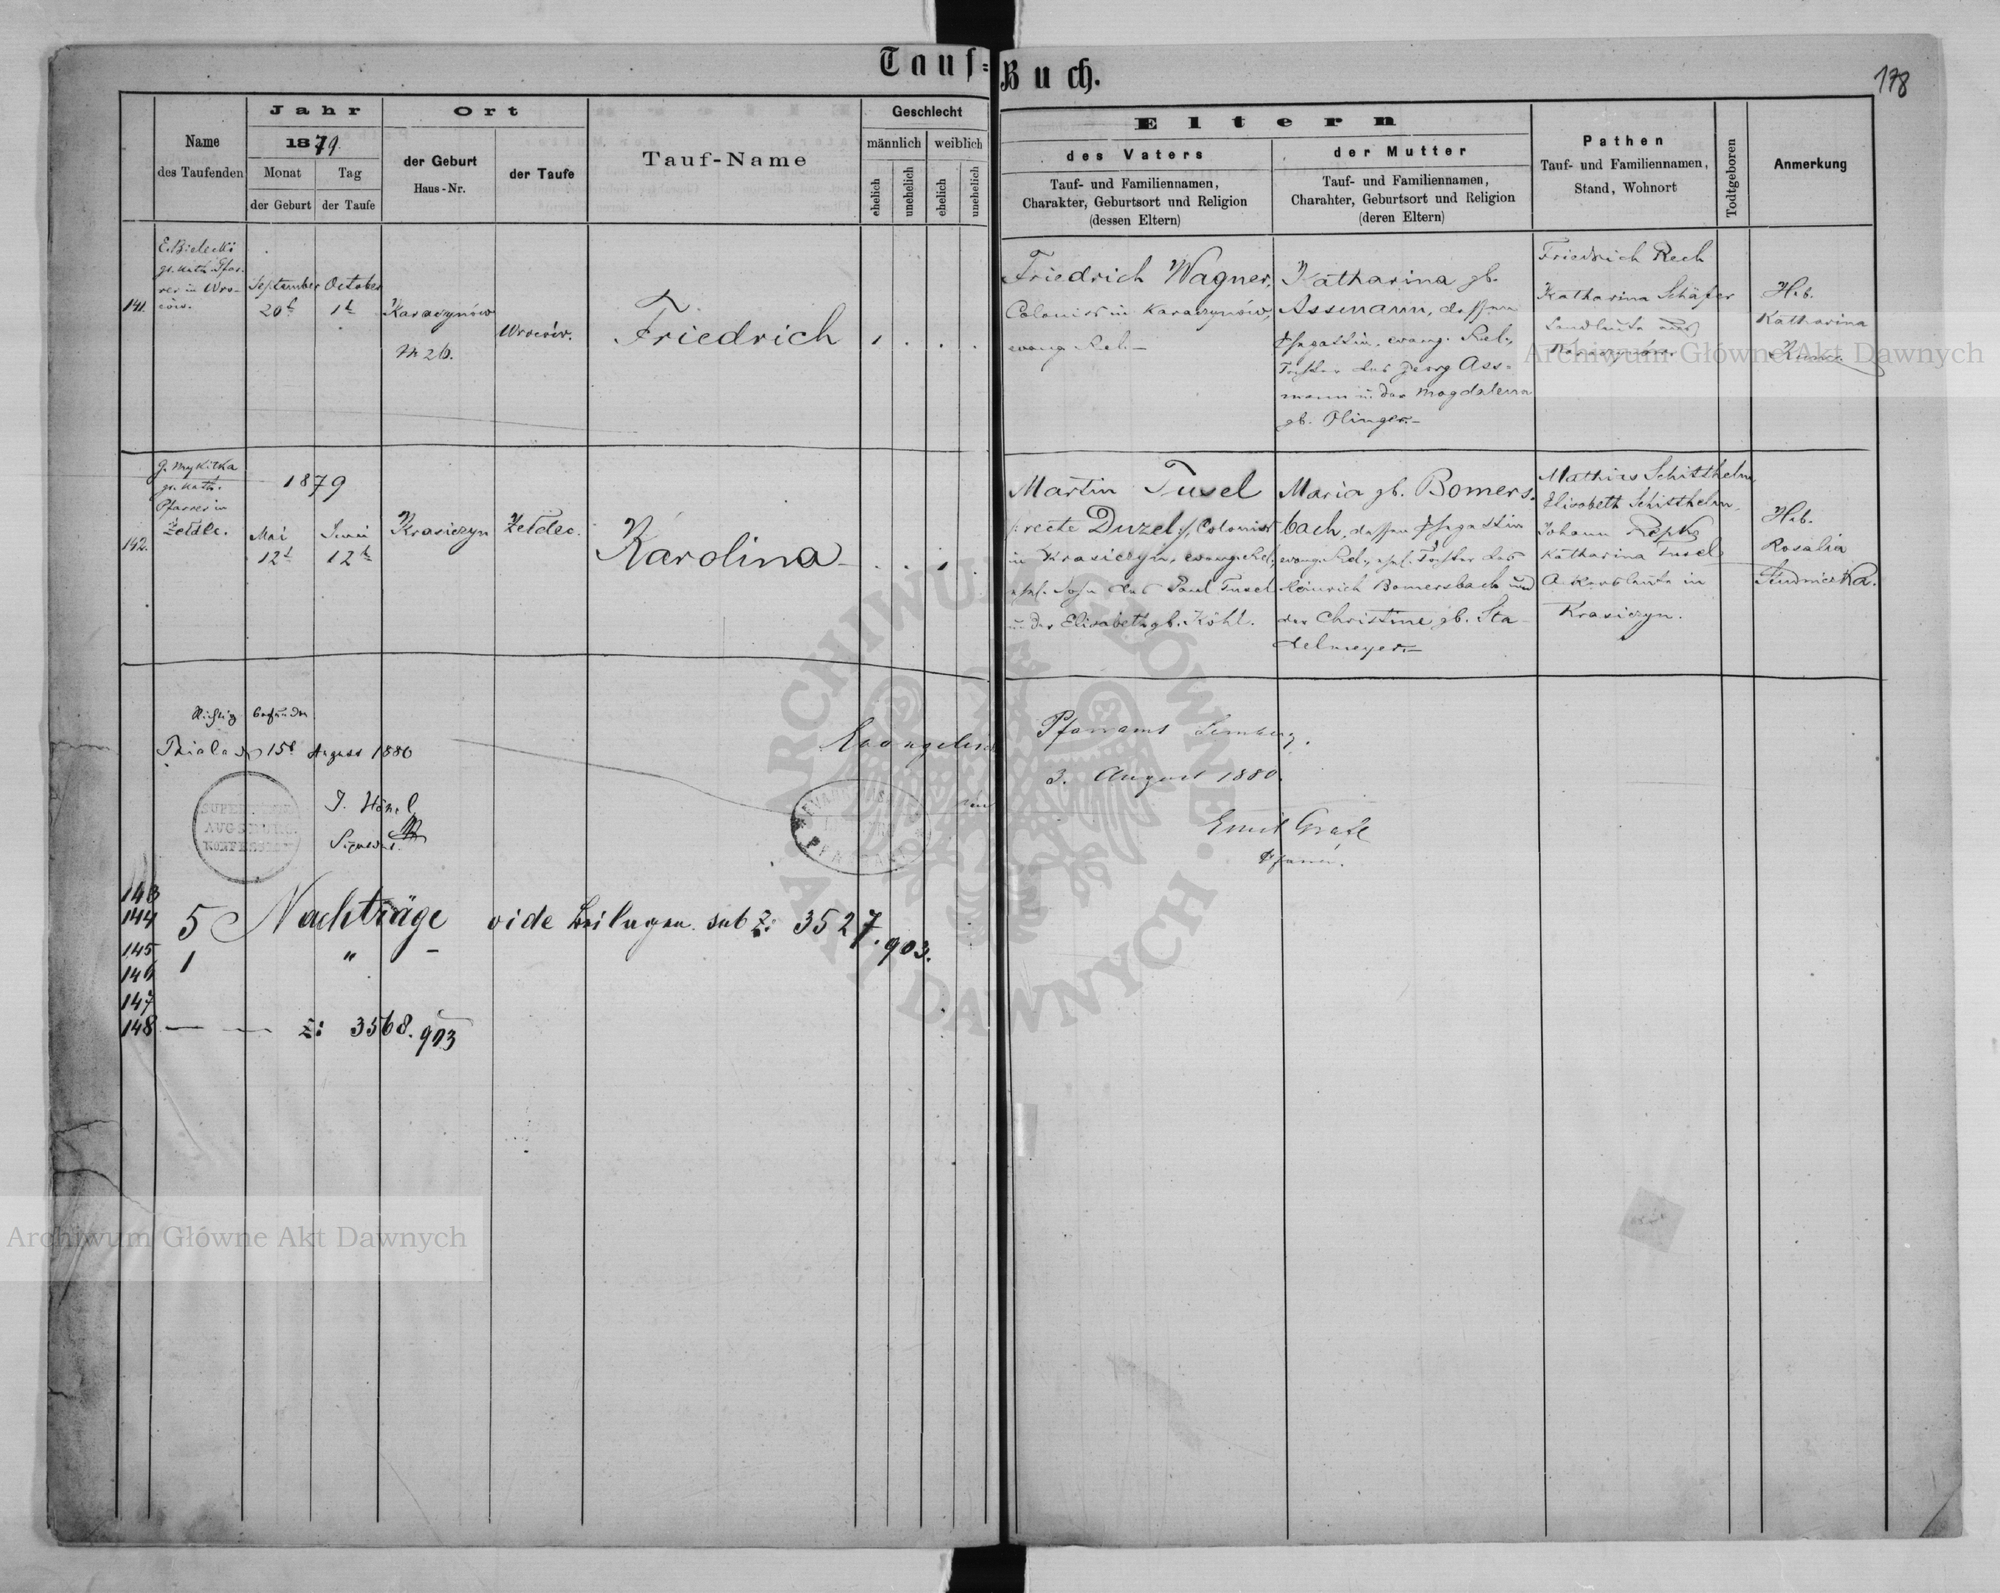 Tauf-Buch.
178
Name
des Taufenden
Jahr
1879.
Monat
der Geburt
Tag
der Taufe
Ort
der Geburt
Haus-Nr.
der Taufe
Tauf-Name
Geschlecht
männlich
weiblich
ehelich
unehelich
ehelich
unehelich
Eltern
des Vaters
Tauf- und Familiennamen,
Charakter, Geburtsort und Religion
(dessen Eltern)
der Mutter
Tauf- und Familiennamen,
Charakter, Geburtsort und Religion
(deren Eltern)
Pathen
Tauf- und Familiennamen,
Stand, Wohnort
Todtgeboren
Anmerkung
141.
E. Bielecki
gr. kath. Pfar-
rer in Wro-
ców.
September
20t
October
1t
Karaczynów
N 26.
Wroców.
Friedrich
Friedrich Wagner,
Colonist in Karaczynów,
evang. Rel.
Katharina gb.
Assmann, dessen
Ehegattin, evang. Rel.,
Tochter des Georg Ass-
mann u. der Magdalena
gb. Olinger.
Friedrich Rech
Katharina Schäfer
Landleute aus
Karaczynów
Heb.
Katharina
142.
G. Mykitka
gr. kath.
Pfarrer in
Zełdec.
1879
Mai
12t
Juni
12t
Krasiczyn
Zełdec.
Karolina
Martin Tusel
recte Duzel, Colonist
in Krasiczyn, evang. Rel.,
ehel. Sohn des Paul Tusel
u. der Elisabeth gb. Köhl.
Maria gb. Bomers-
bach, dessen Ehegattin
evang. Rel., ehel. Tochter des
Heinrich Bomersbach und
der Christine gb. Sta-
delmeyer.
Mathias Schitthelm
Elisabeth Schitthelm,
Johann Repka
Katharina Tusel
Ackersleute in
Krasiczyn.
Heb.
Rosalia
Richtig befunden
Biala 15t August 1880
AUGSBURG.
Evangelisches Pfarramt Lemberg,
3. August 1880.
Emil
Pfarrer.
143
144
145
146
147
148
5 Nachträge vide Beilagen sub Z: 3527.903.
1 " -
Z: 3568.903
Archiwum Główne Akt Dawnych
Archiwum Główne Akt Dawnych
ARCHIWUM GŁÓWNE AKT DAWNYCH